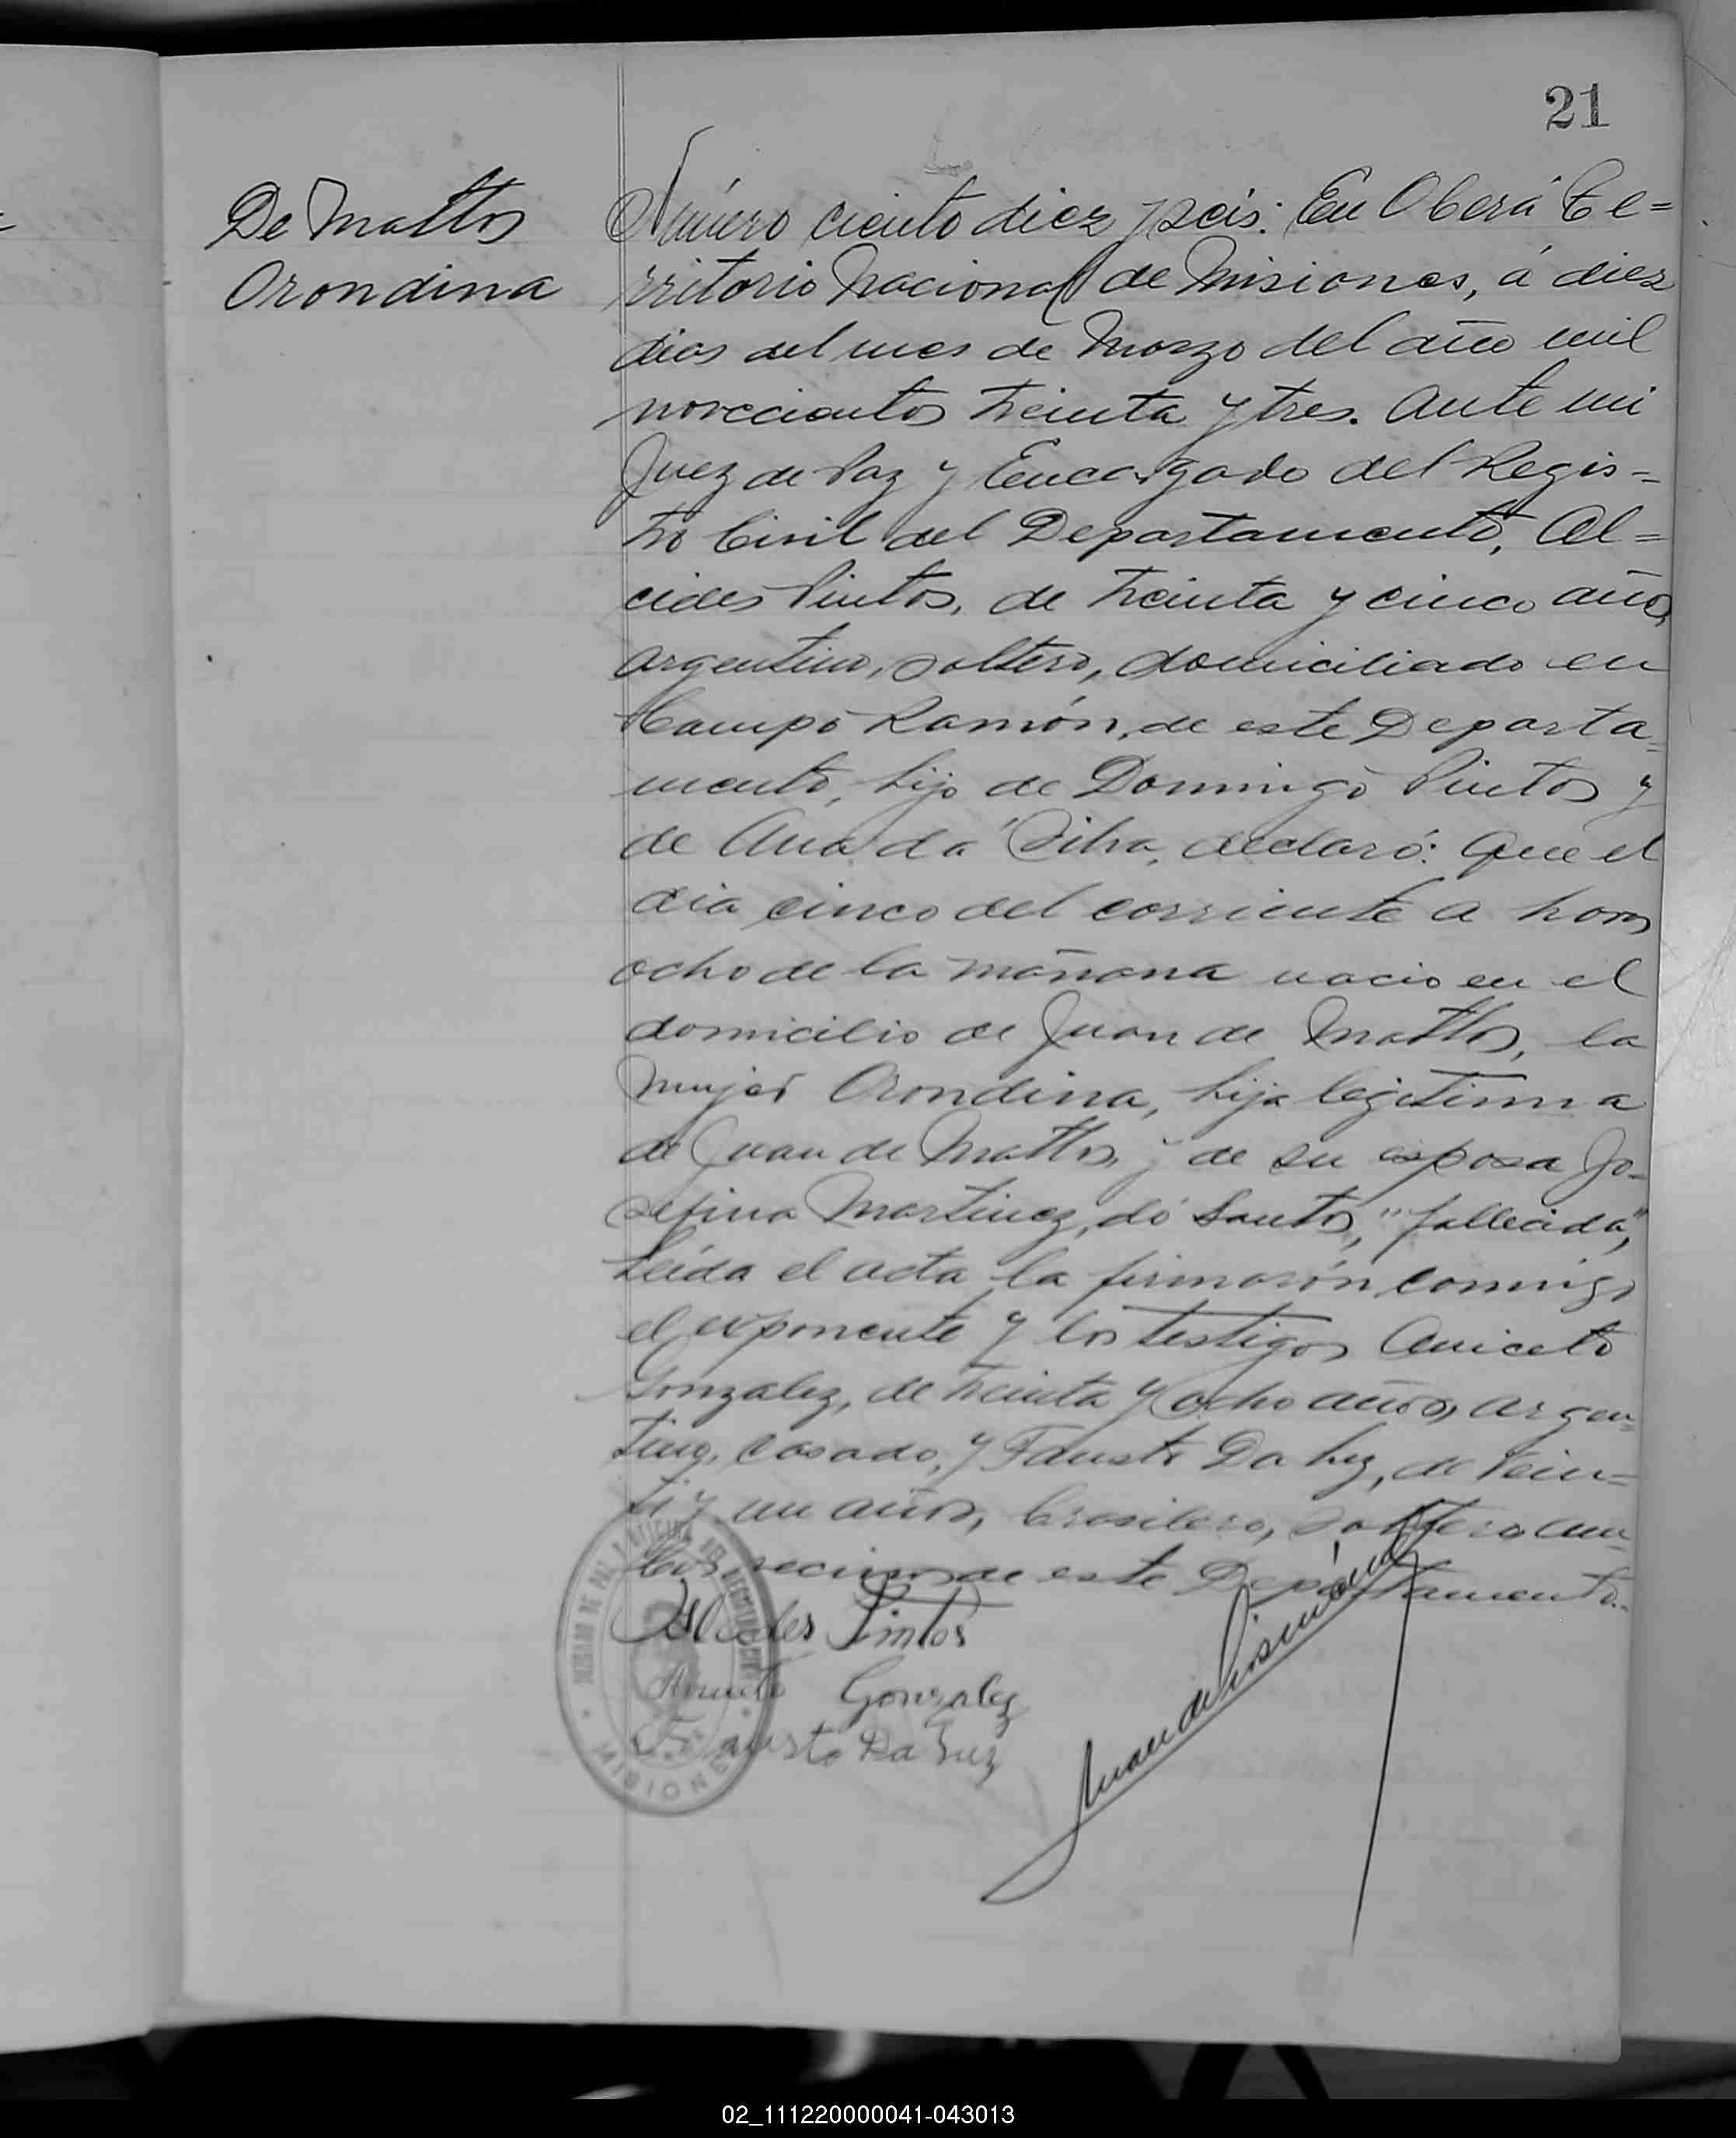 21
De Mattos
Orondina
Número ciento diez y seis: En Oberá Te=
rritorio Nacional de Misiones, á diez
dias del mes de Marzo del año mil
novecientos treinta y tres. Ante mi
Juez de Paz y Encargado del Regis=
tro Civil del Departamento, Al=
cides Pintos, de treinta y cinco años
argentino, soltero, domiciliado en
Campo Ramón, de este Departa=
mento, hijo de Domingo Pintos y
de Ana da Silva, declaró: Que el
dia cinco del corriente a horas
ocho de la mañana nacio en el
domicilio de Juan de Mattos, la
mujer Orondina, hija legitima
de Juan de Mattos, y de su esposa Jo=
sefina Martinez, dó Santos, "fallecida",
Leida el acta la firmarón conmigo
el exponente y los testigos Aniceto
Gonzalez, de treinta y ocho años, argen=
tino, casado, y Fausto Da Luz, de vein=
ti y un años, brasilero, soltero am=
bos vecinos de este Departamento.-
Alcides Pintos
Aniceto Gonzalez
Fausto Da Luz
Juan de
JUZGADO DE PAZ Y OFICINA DEL REGISTRO CIVIL
MISIONES
02_111220000041-043013